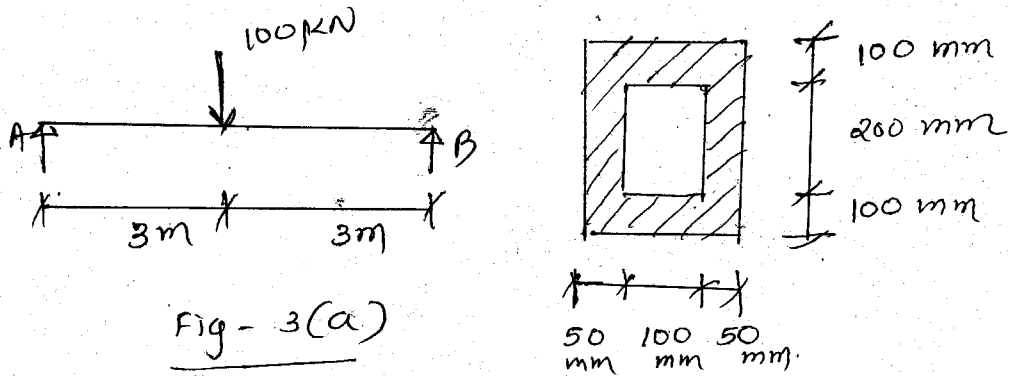 100 KN
A
B
3m
3m
Fig - 3(a)
100 mm
200 mm
100 mm
50 100 50
mm mm mm.